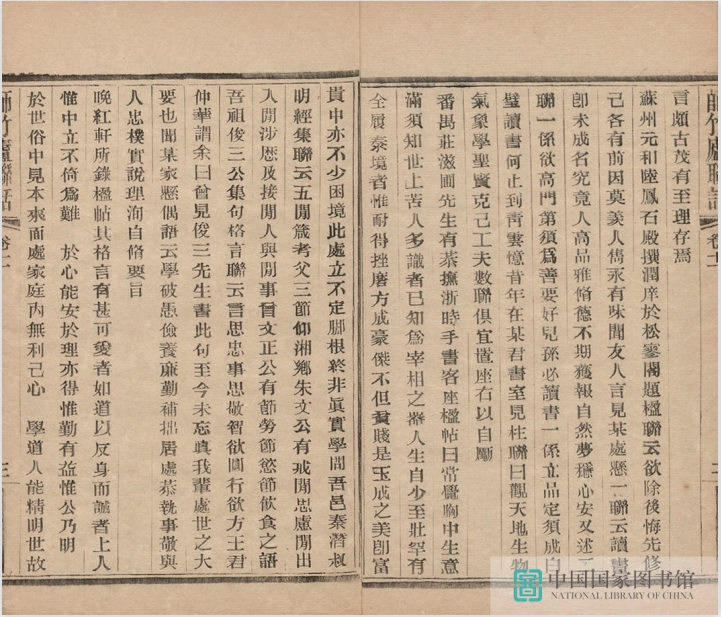 師竹廬聯話 卷十二
言頗古茂有至理存焉
蘇州元和陸鳳石殿撰潤庠於松鑒閣題楹聯云欲除後悔先修
己各有前因莫羨人雋永有味聞友人言見某處懸一聯云讀書
卽未成名究竟人高品雅脩德不期獲報自然夢穩心安又述二
聯一係欲高門第須爲善要好兒孫必讀書一係立品定須成白
璧讀書何止到青雲憶昔年在某君書室見柱聯曰觀天地生物
氣象學聖賢克己工夫數聯俱宜置座右以自勵
番禺莊滋圃先生有恭撫浙時手書客座楹帖曰常覺胸中生意
滿須知世上苦人多識者已知爲宰相之器人生自少至壯罕有
全履泰境者惟耐得挫磨方成豪傑不但貧賤是玉成之美卽富
貴中亦不少困境此處立不定脚根終非眞實學問吾邑秦潛叔
明經集聯云五聞箴考父三節仰湘鄉朱文公有戒聞思慮聞出
入聞涉歷及接聞人與聞事曾文正公有節勞節慾節飲食之語
吾祖俊三公集句格言聯云言思忠事思敬智欲圓行欲方王君
仲華謂余曰曾見俊三先生書此句至今未忘眞我輩處世之大
要也聞某家懸偶語云學破愚儉養廉勤補拙居處恭執事敬與
人忠樸實說理洵自脩要旨
晚紅軒所錄楹帖其格言有甚可愛者如道以反身而誠者上人
惟中立不倚爲難 於心能安於理亦得惟勤有益惟公乃明
於世俗中見本來面處家庭內無利己心 學道人能精明世故
師竹廬聯話 卷十二 三
中国国家图书馆
NATIONAL LIBRARY OF CHINA